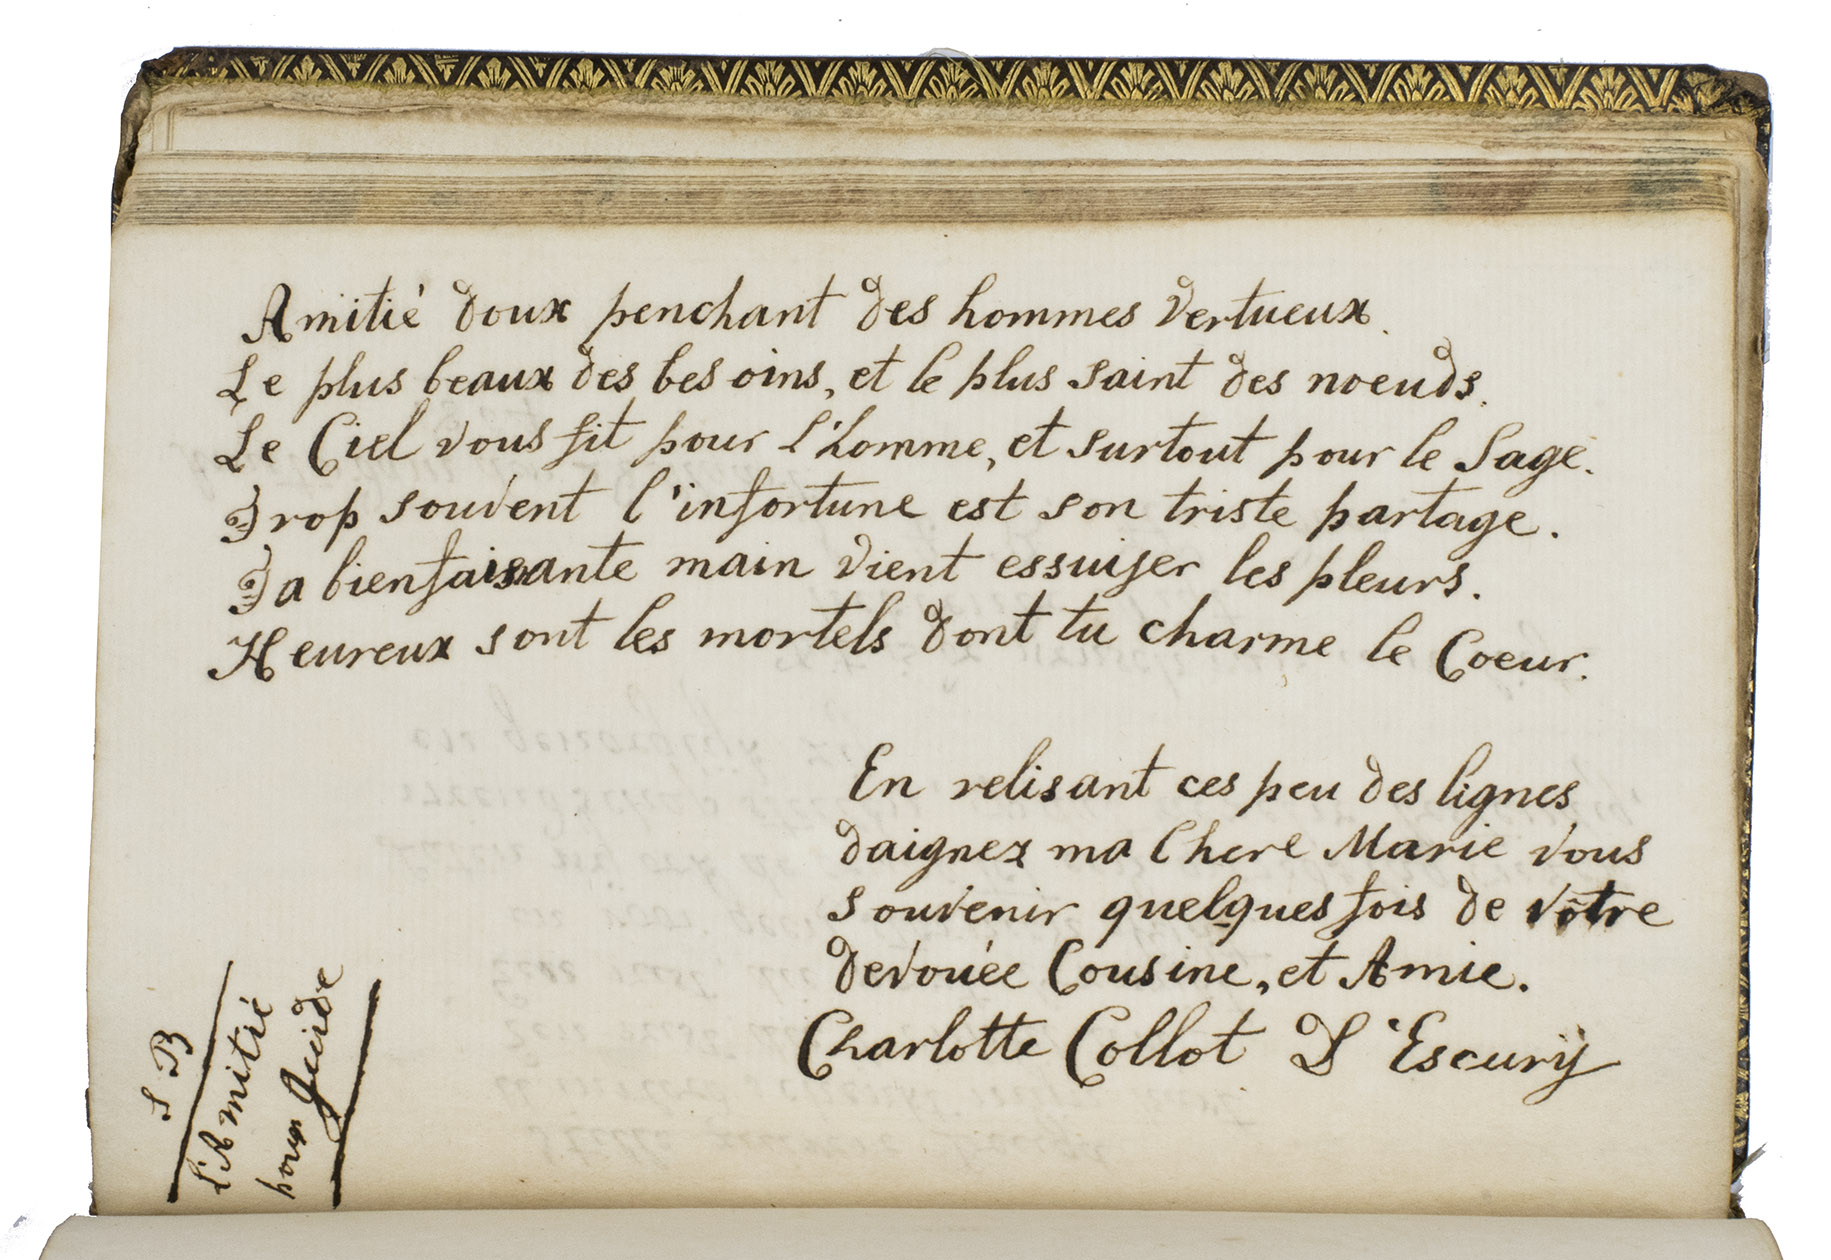 Amitié doux penchant des hommes vertueux.
Le plus beaux des besoins, et le plus saint des noeuds.
Le Ciel vous fit pour l'homme, et surtout pour le Sage.
Trop souvent l'infortune est son triste partage.
Ta bienfaisante main vient essuijer les pleurs.
Heureux sont les mortels dont tu charme le Coeur.
En relisant ces peu des lignes
daignez ma Chere Marie vous
souvenir quelques fois de votre
devouée Cousine, et Amie.
Charlotte Collot D'Escurÿ
S B
l'Amitié
pour Guide